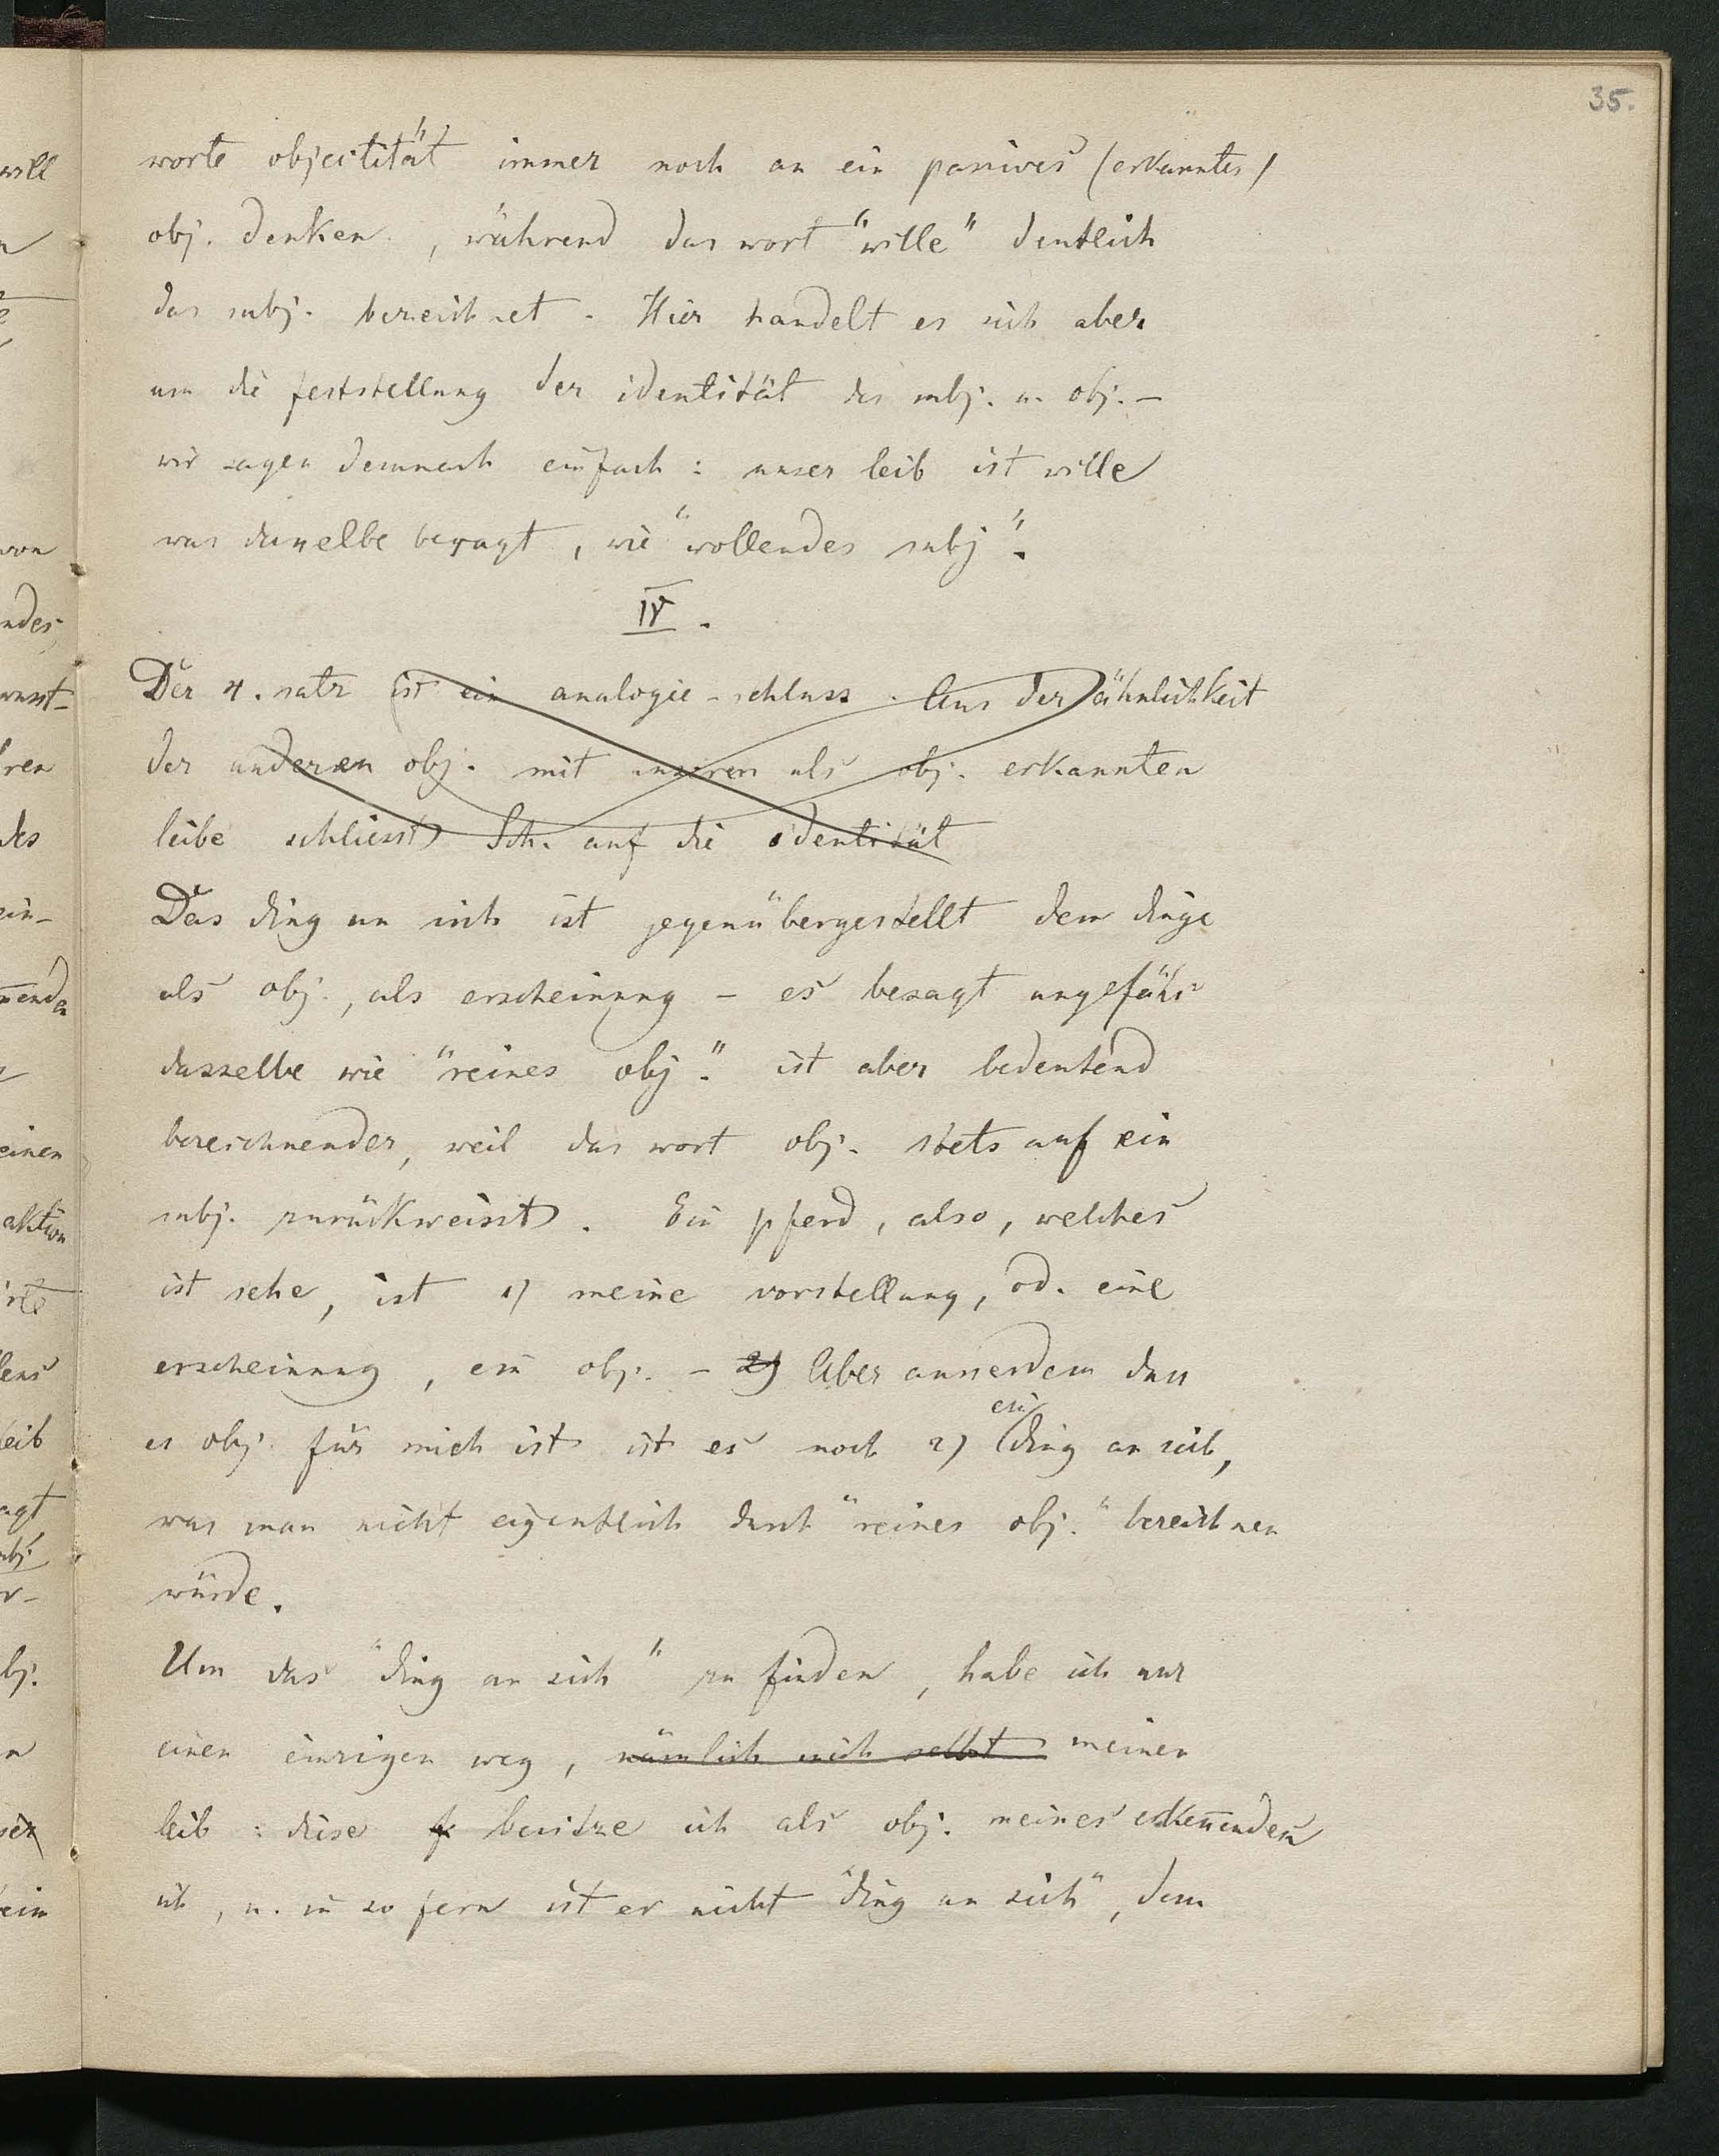 35.
worte objectität" immer noch an ein passives (erkanntes)
obj. denken, während das wort "wille" deutlich
das subj. bezeichnet. Hier handelt es sich aber
um die feststellung der identität des subj. u. obj. –
wir sagen demnach einfach: unser leib ist wille
was dasselbe besagt, wie "wollendes subj".
IV.
Der 4. satz ist ein analogie-schluss. Aus der ähnlichkeit
der anderen obj. mit unseren als obj. erkannten
leibe schliesst Sch. auf die identität
Das ding an sich ist gegenübergestellt dem dinge
als obj., als erscheinung – es besagt ungefähr
dasselbe wie "reines obj." ist aber bedeutend
bezeichnender, weil das wort obj. stets auf ein
subj. zurückweisst. Ein pferd, also, welches
ist sehe, ist 1) meine vorstellung, od. eine
erscheinung, ein obj. – 2) Aber ausserdem dass
es obj. für mich ist ist es noch 2) ein ding an sich,
was man nicht eigentlich durch "reines obj." bezeichnen
würde.
Um das "ding an sich" zu finden, habe ich nur
einen einzigen weg, nämlich mich selbst meinen
leib: diese besitze ich als obj. meines erken̄enden
ich, u. in so fern ist er nicht "ding an sich", denn
will
von
ndes,
wusst-
ren
des
ein-
einen
aktion
leib
agt
obj.